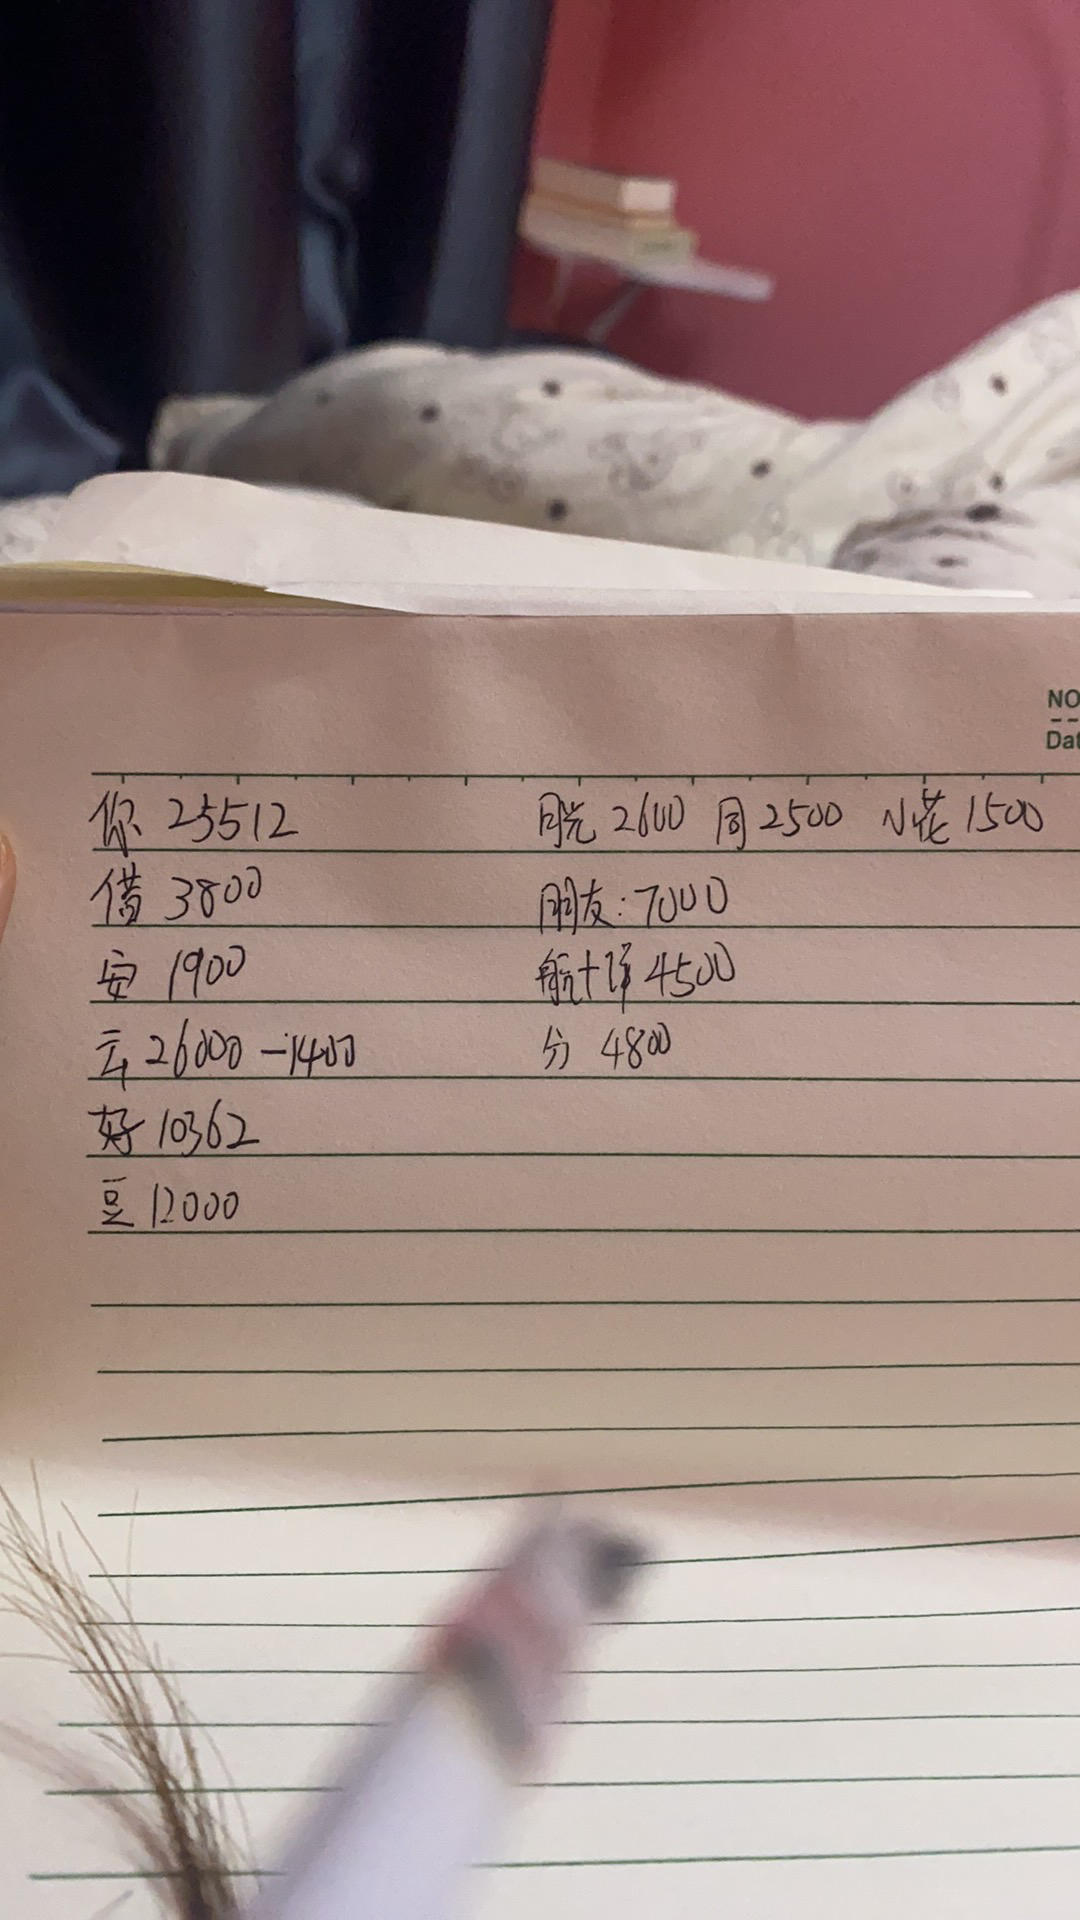 NO
Dat
你 25512
借 3800
安 1900
云 26000 -1400
好 10362
豆 12000
2600 同 2500 小花 1500
朋友:7000
航+洋 4500
分 4800